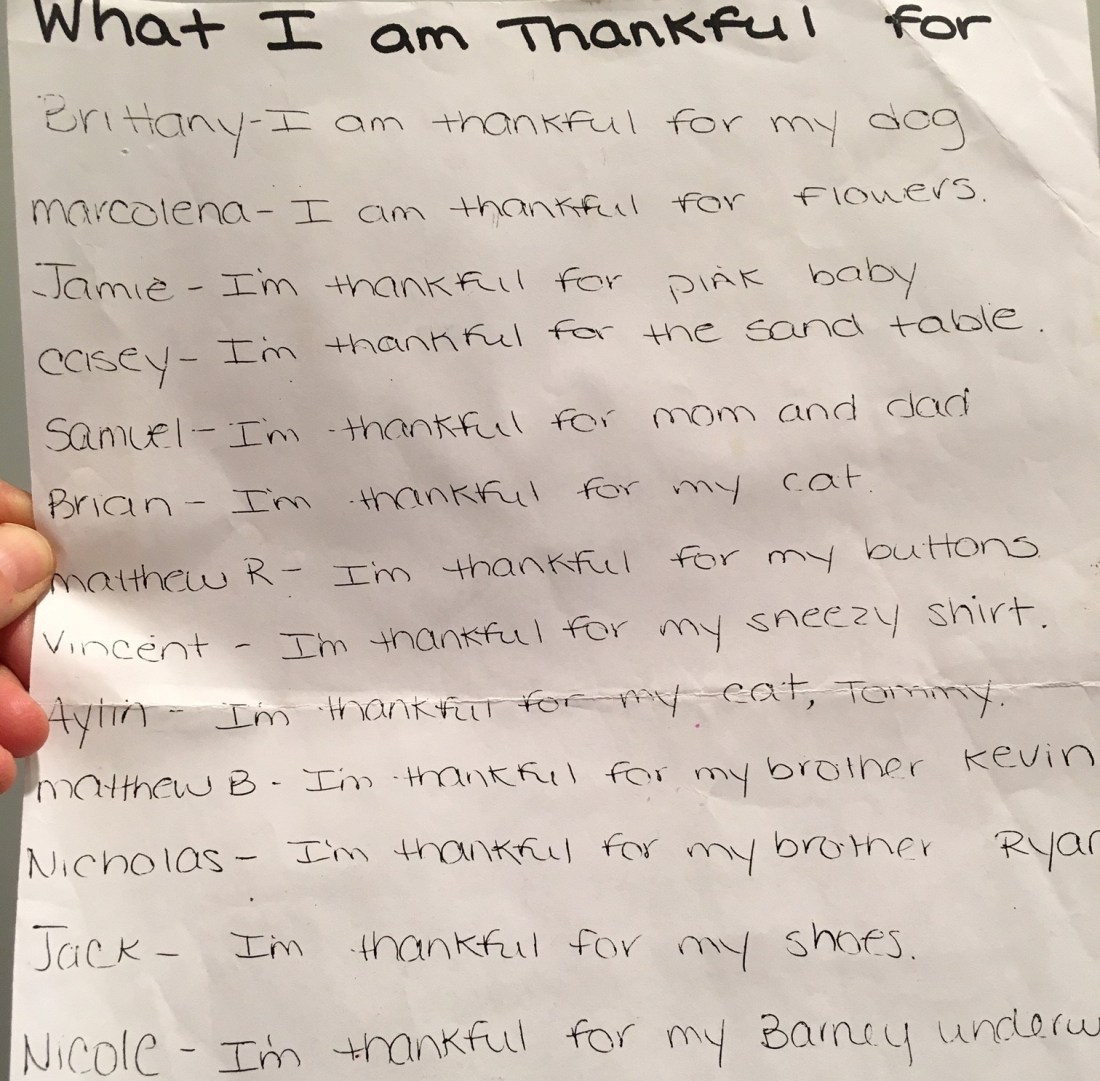 What I am Thankful for
Brittany-I am thankful for my dog
marcolena- I am thankful for flowers.
Jamie - I'm thankful for pink baby
casey- I'm thankful for the sand table.
Samuel- I'm thankful for mom and dad
Brian- I'm thankful for my cat.
matthew R- I'm thankful for my buttons
Vincent - I'm thankful for my sneezy shirt.
Aylin - I'm thankful for my cat, Tommy.
matthew B - I'm thankful for my brother Kevin
Nicholas- I'm thankful for my brother
Jack- I'm thankful for my shoes.
Nicole - I'm thankful for my Barney